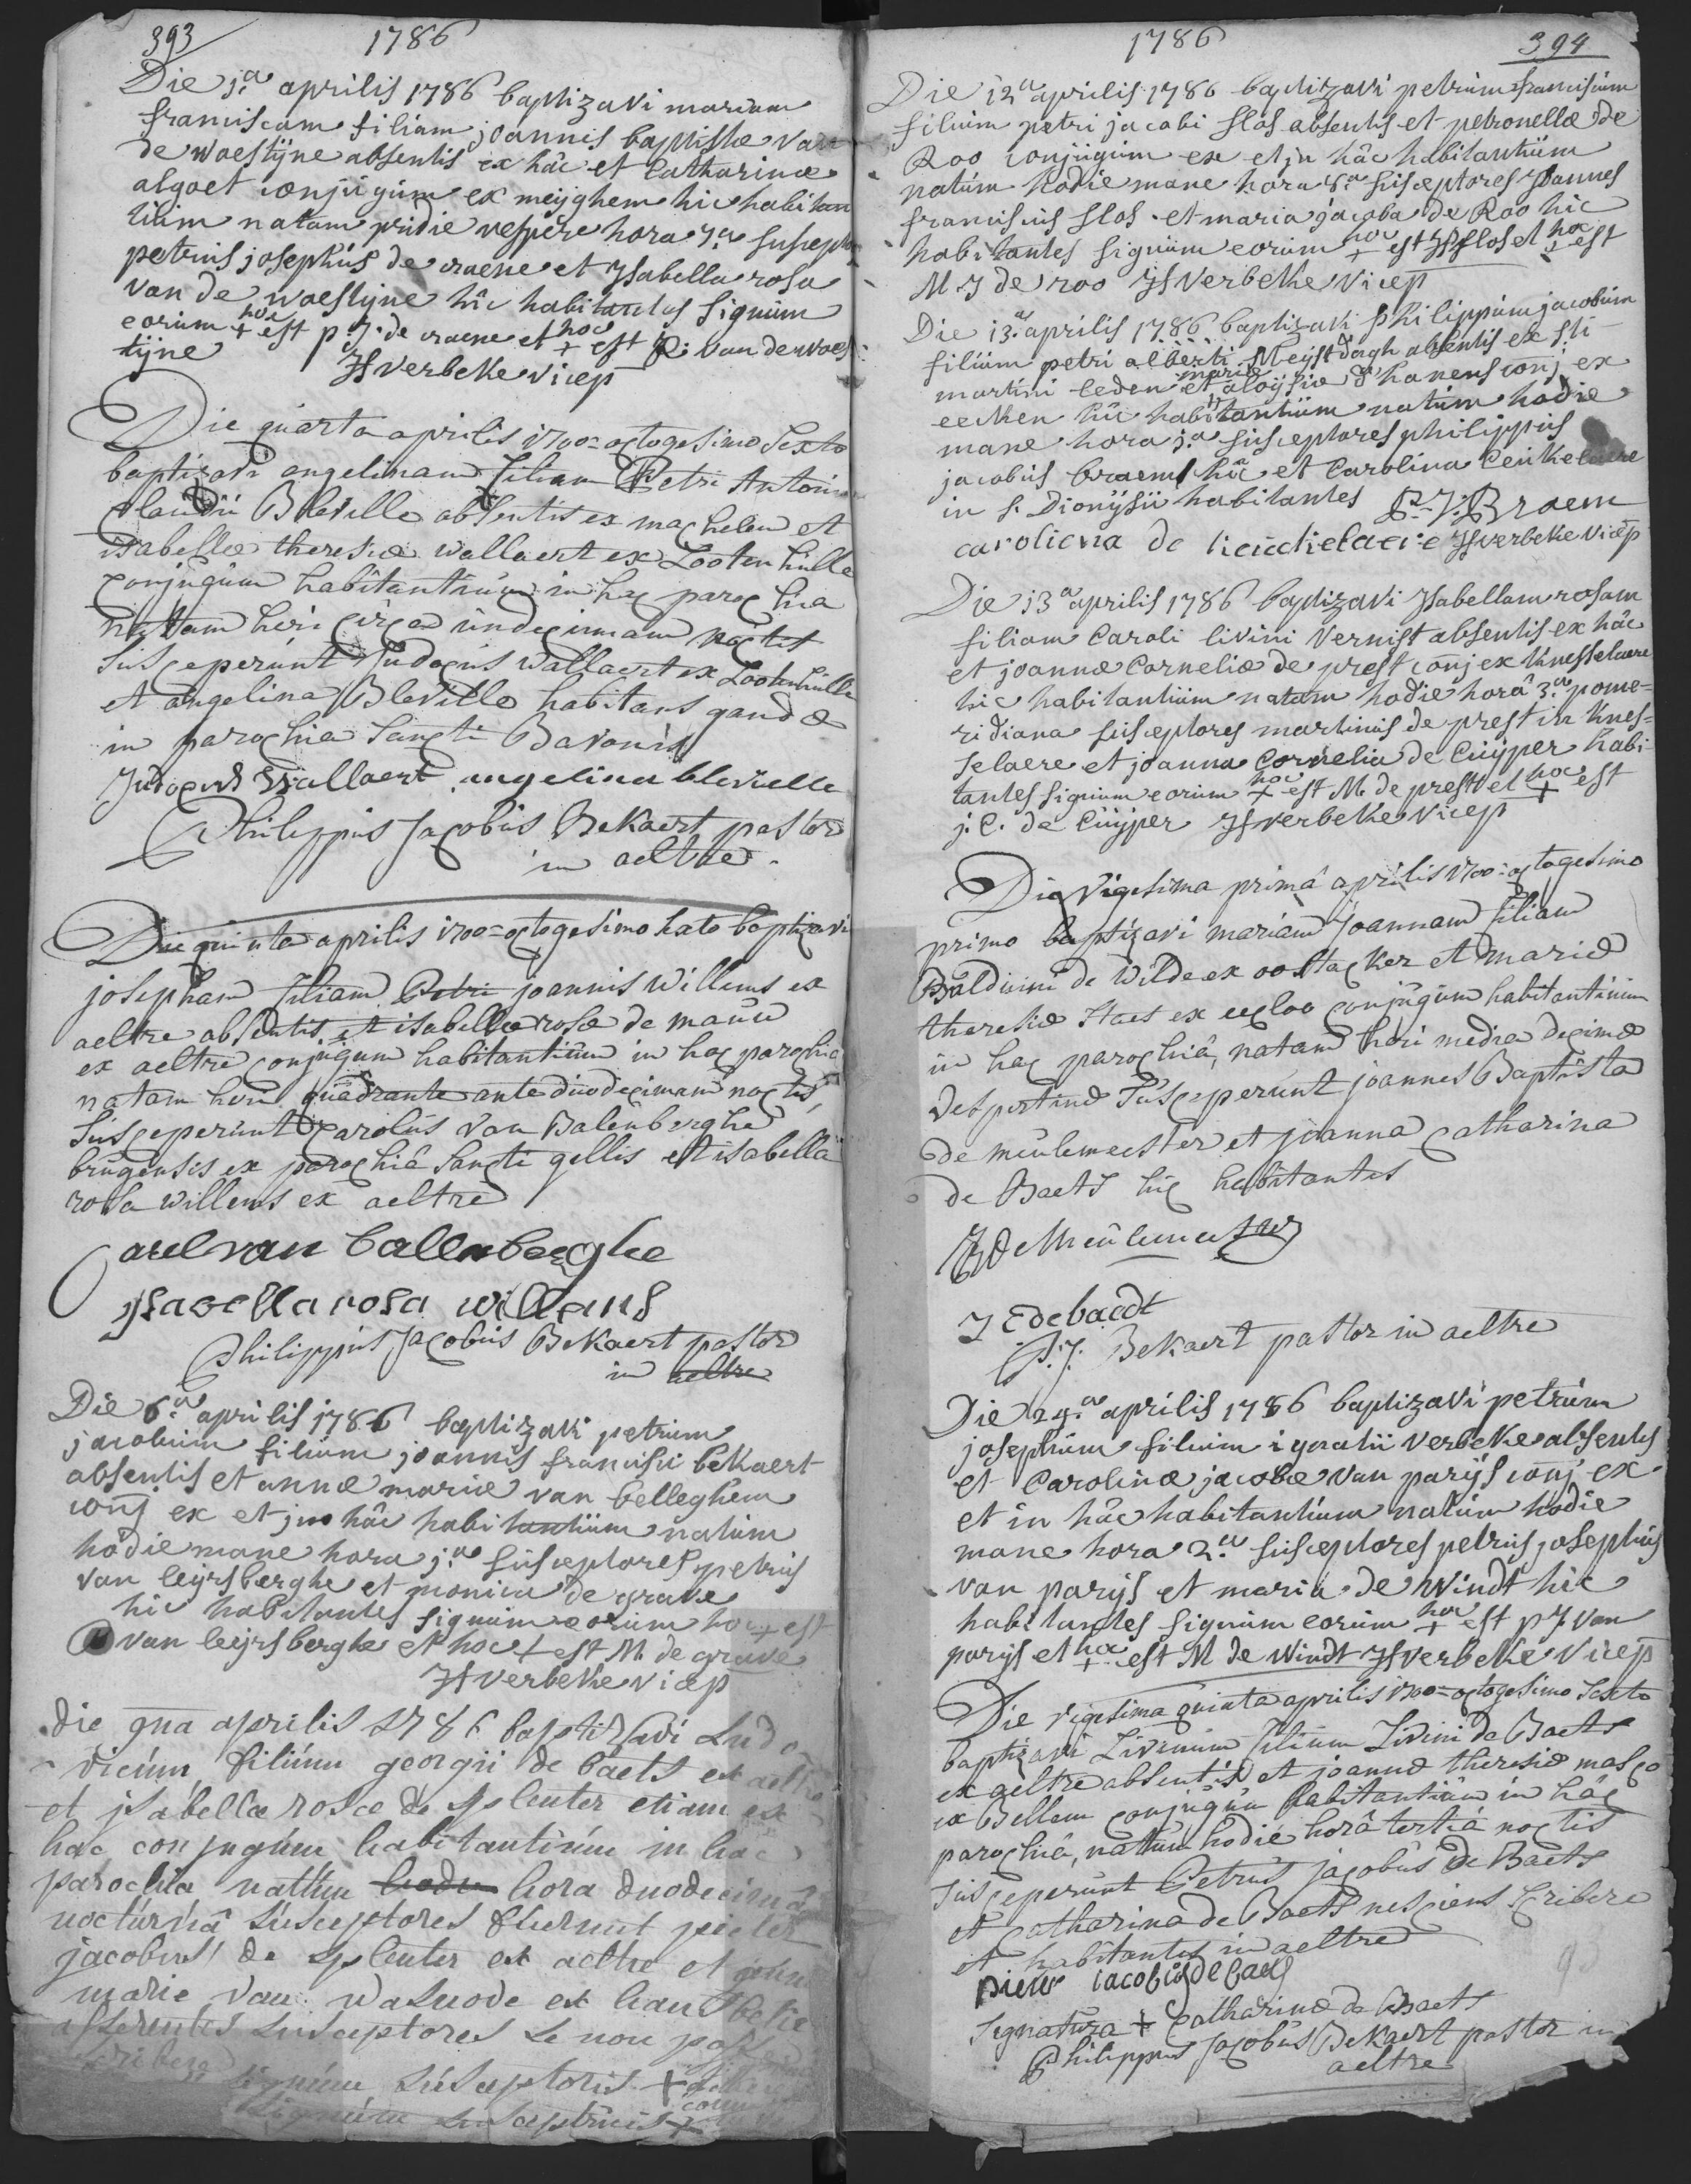 393 1786
Die 1.a aprilis 1786 baptizavi mariam
franciscam filiam joannis baptistæ van
de woestijne absentis ex hâc et Catharinæ
algoet conjúgúm ex meijghem hic habitan
tiúm natam pridie vespere hora 7.a suscept
petrús josephús de craene et Ysabella rosa
van de woestijne hîc habitantes signúm
eorúm hoc + est p J. de craene et hoc + est R: van de woes
tijne JF verbeke vicep
Die qúarta aprilis 1700=octogesimo Sexto
baptizavi angelinam filiam Petri Antonii
Claúdii Bleville absentis ex machelen et
isabellæ theresiæ wallaert ex Lootenhúlle
conjúgúm habitantiúm in hac parochia
natam heri circa úndecimam noctis
Súsceperúnt Júdocús wallaert ex Lootenhúlle
et angelina Bleville habitans gandæ
in parochia Sancti Bavonis
Judocus Wallaert angelina blevielle
Philippús Jacobús Bekaert pastor
in aeltre.
Die quinta aprilis 1700=octogesimo Sexto baptizavi
josepham filiam Petri joannis Willems ex
aeltre absentis et isabellæ rosæ de maúú
ex aeltre conjúgum habitantiúm in hac parochia
natam heri quadrante ante dúodecimam noctis,
Súsceperúnt Carolús van Balenberghe
brúgensis ex parochiâ Sancti gillis et isabella
rosa willems ex aeltre
Carel van ballenberghe
ysabella rosa willems
Philippús Jacobús Bekaert pastor
in aeltre
Die 6.a aprilis 1786 baptizavi petrúm
jacobúm filiúm joannis francisci bekaert
absentis et annæ mariæ van belleghem
conj ex et in hâc habitantiúm natúm
hodie mane hora 1.a súsceptores petrús
van leijrsberghe et monica de grave
hic habitantes signúm eorúm hoc + est
P van leijrsberghe et hoc + est M. de grave
JF verbeke vicep
die 9na aprilis 1786 baptizavi Ludo
vicúm filiúm georgii de baets ex aeltre
et isabellæ rosæ de splenter etiam ex
hac conjugúm habitantiúm in hac
parochia natúm hodie hora duodecima
noctúrnâ súsceptores fuerunt pieter
jacobus de splenter ex aeltre et
marie van ex
asserentes susceptores se non posse
scribere
signúm súsceptoris +
signúm susceptricis +
1786 394
Die 12.a aprilis 1786 baptizavi petrúm franciscúm
filiúm petri jacobi slos absentis et petronellæ de
Roo conjúgúm ex et in hâc habitantiúm
natúm hodie mane hora 6.a súsceptores Joannes
franciscús slos et maria jacoba de Roo hîc
habitantes signúm eorúm hoc + est JF slos et hoc + est
M J de roo JF Verbeke vicep
Die 13.a aprilis 1786 baptizavi philippúm jacobúm
filiúm petri alberti Meijsdagh absentis ex sti
martini leden et mariæ aloijsiæ d'hanens conj ex
eecken hîc habitantiúm natúm hodie
mane hora 1.a súsceptores philippús
jacobús braem hîc et Carolina Ceúkelaere
in s. Dionijsii habitantes P. J. Braem
caroliena de JF verbeke vicep
Die 13.a aprilis 1786 baptizavi Ysabellam rosam
filiam Caroli livini Vernist absentis ex hâc
et joannæ Corneliæ de prest conj ex knesselaere
hic habitantiúm natam hodie horâ 3.a pome=
ridiana súsceptores martinús de prest in knes=
selaere et joanna Cornelia de Cúijper habi
tantes signum eorúm hoc + est M. de prest et hoc + est
j. C. de Cúijper JF verbeke vicep
Die Vigesima primâ aprilis 1700=octogesimo
primo baptizavi mariam Joannam filiam
Baldúini de Wilde ex oostacker et mariæ
theresiæ Staes ex eecloo conjúgúm habitantiúm
in hac parochiâ, natam heri mediâ decimæ
vespertinæ Súsceperúnt joannes Baptista
de meúlemeester et joanna Catharina
de Baets hîc habitantes
JB de Meúlemeester
J C de baedt
P. J. Bekaert pastor in aeltre
Die 24.a aprilis 1786 baptizavi petrúm
josephúm filiúm ignatii verbeke absentis
et Carolinæ jacobæ Van parijs conj ex
et in hâc habitantiúm natúm hodie
mane hora 2.a súsceptores petrús josephús
van parijs et maria de windt hîc
habitantes signúm eorúm hoc + est p J van
parijs et hoc + est M de windt JF verbeke vicep
Die vigesima quinta aprilis 1700=octogesimo Sexto
baptizavi Livinum filium Livini de Baets
ex aeltre absentis et joannæ theresiæ masco
ex Bellem conjúgúm habitantiúm in hâc
parochiâ, natum hodie horâ tertiâ noctis
Súsceperúnt Petrús jacobús de Baets
et Catharina de Baets nesciens scribere
et habitantes in aeltre
pieter iacobús de baets
Signatúra + Catharinæ de Baets
Philippus Jacobús Bekaert pastor in
aeltre